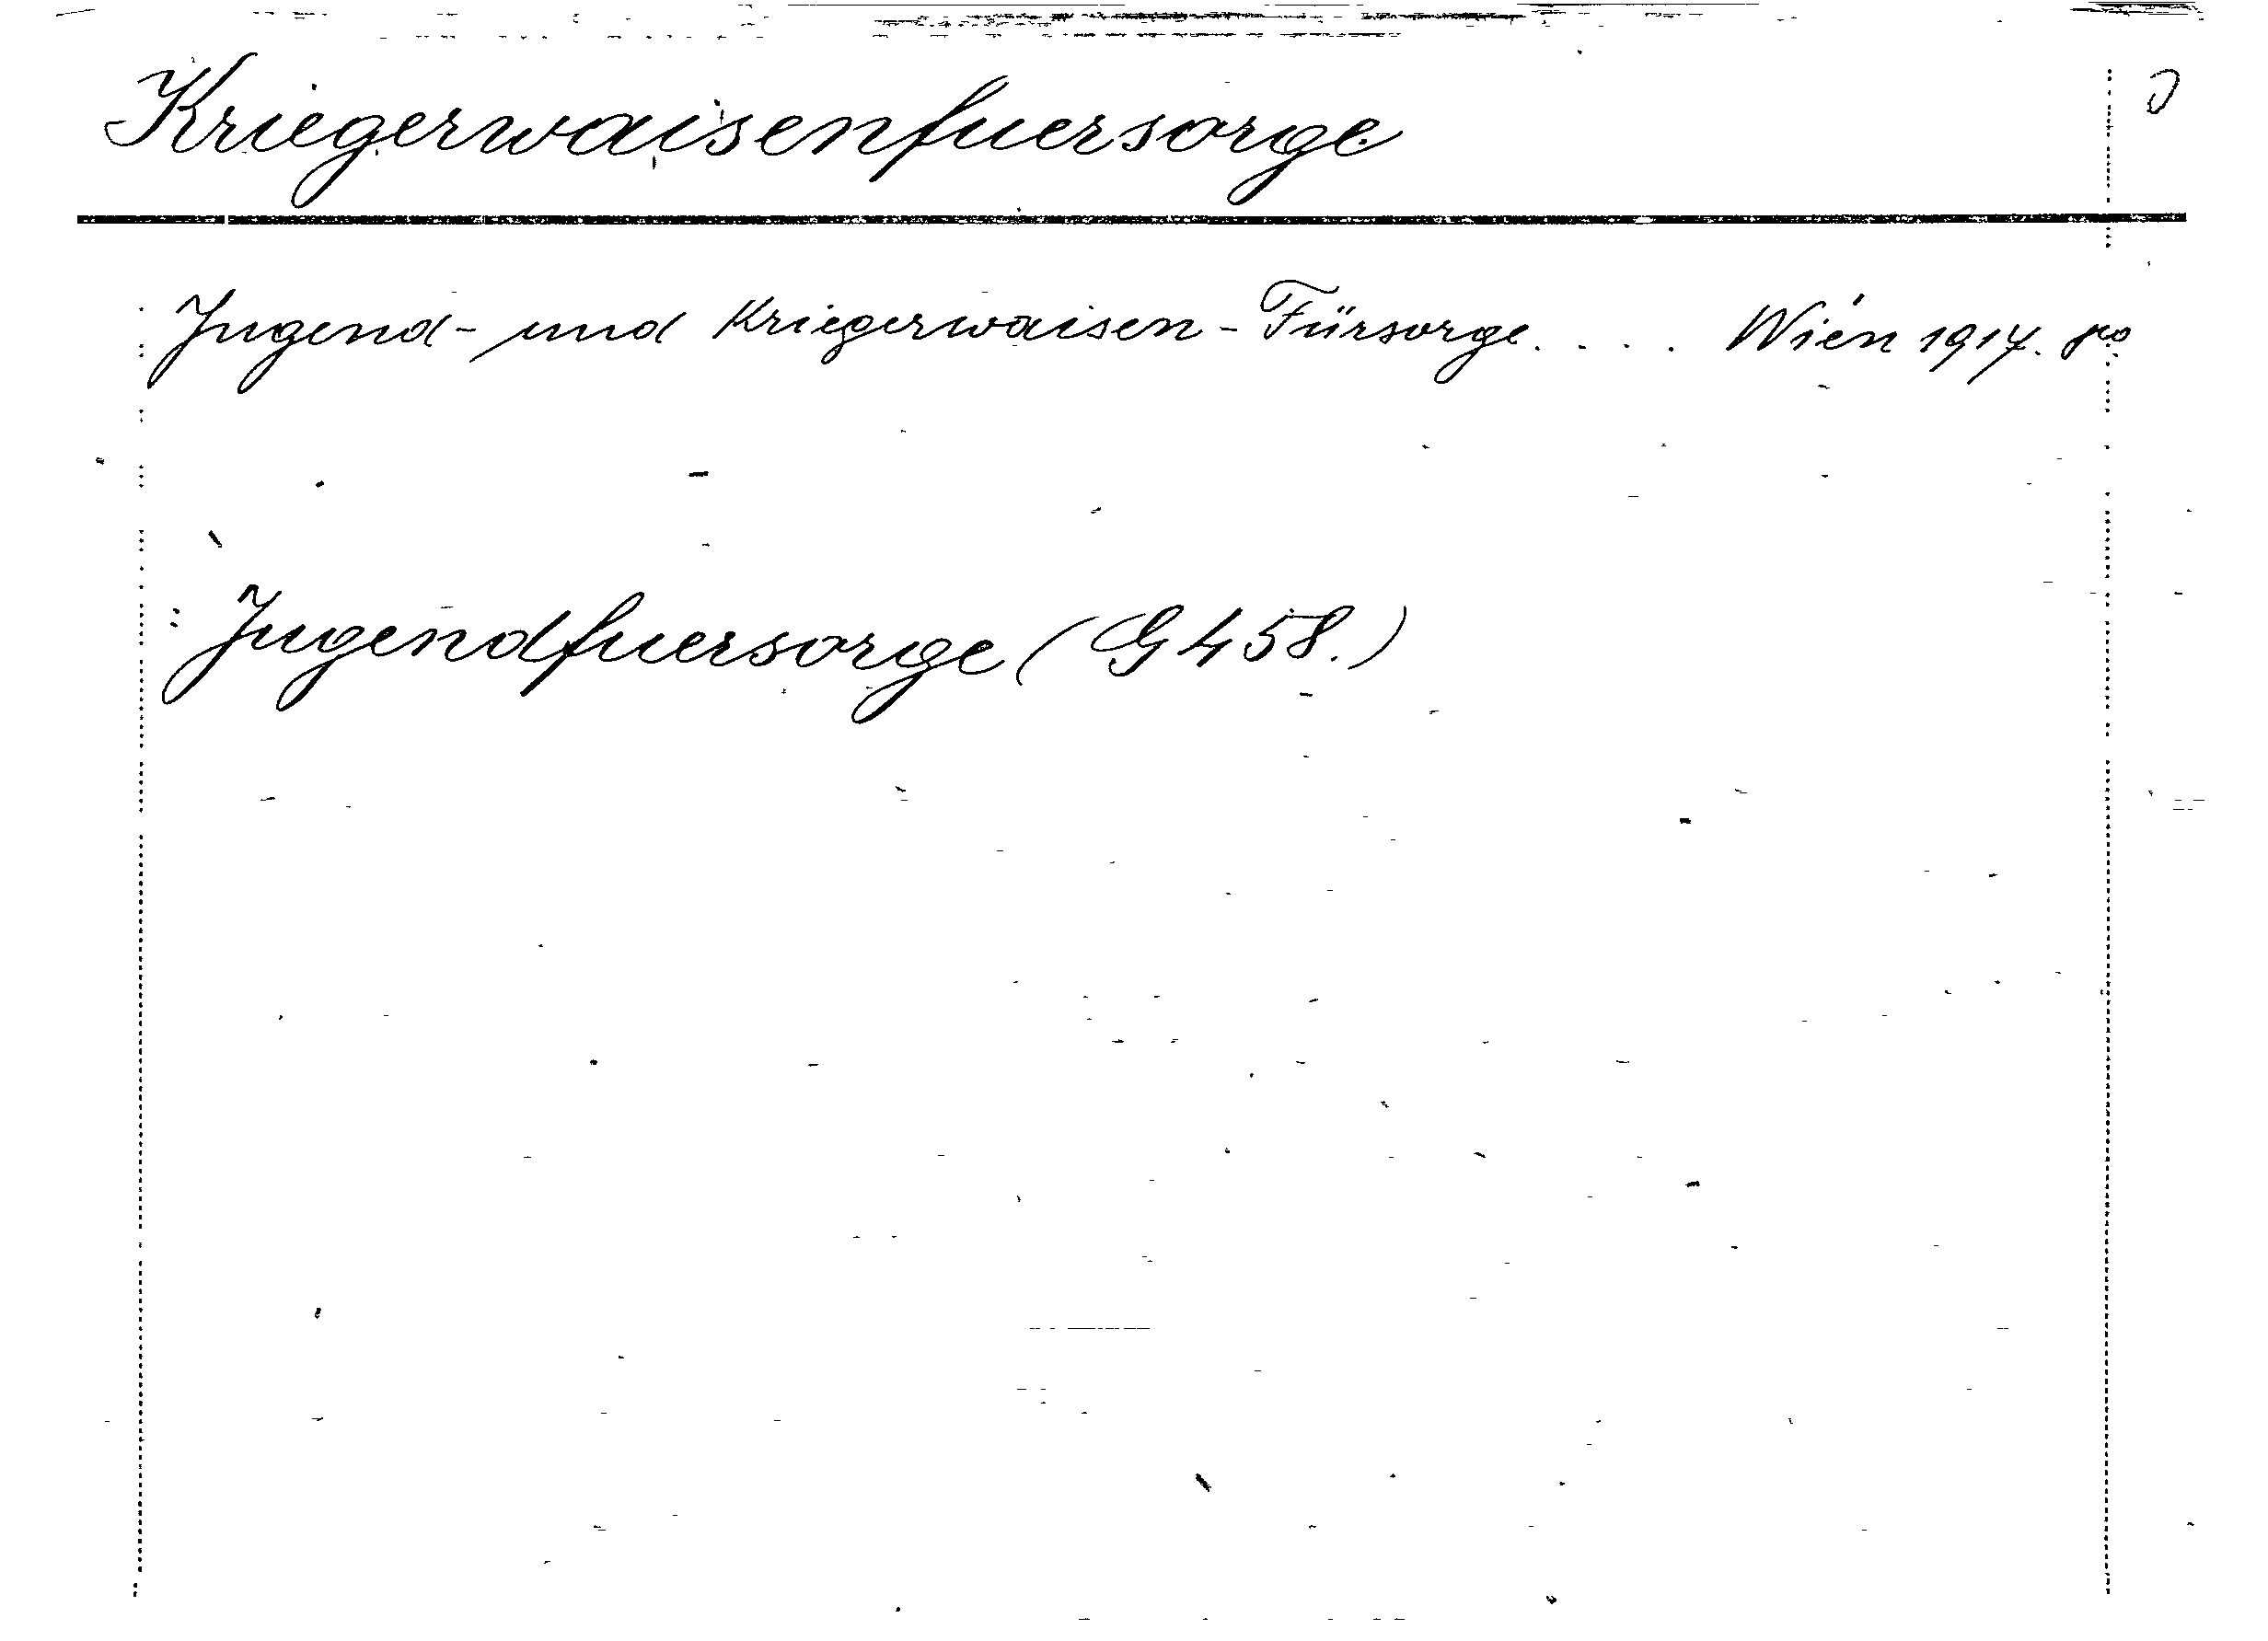 Kriegerwaisenfuersorge
Jugend- und Kriegerwaisen-Fürsorge.... Wien 1917.
Jugendfuersorge (G 458.)